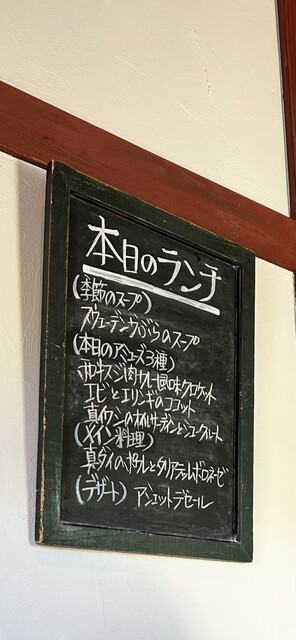 本日のランチ
(季節のスープ)
スウェーデンかぶらのスープ
(本日のアミューズ3種)
ホホキスジ肉カレー風味クロケット
エビとエリンギのココット
真イワシのオイルサーディンとシュークルート
(メイン料理)
真ダイのポワレとタリアテッレボロネーゼ
(デザート) アシェットデセール